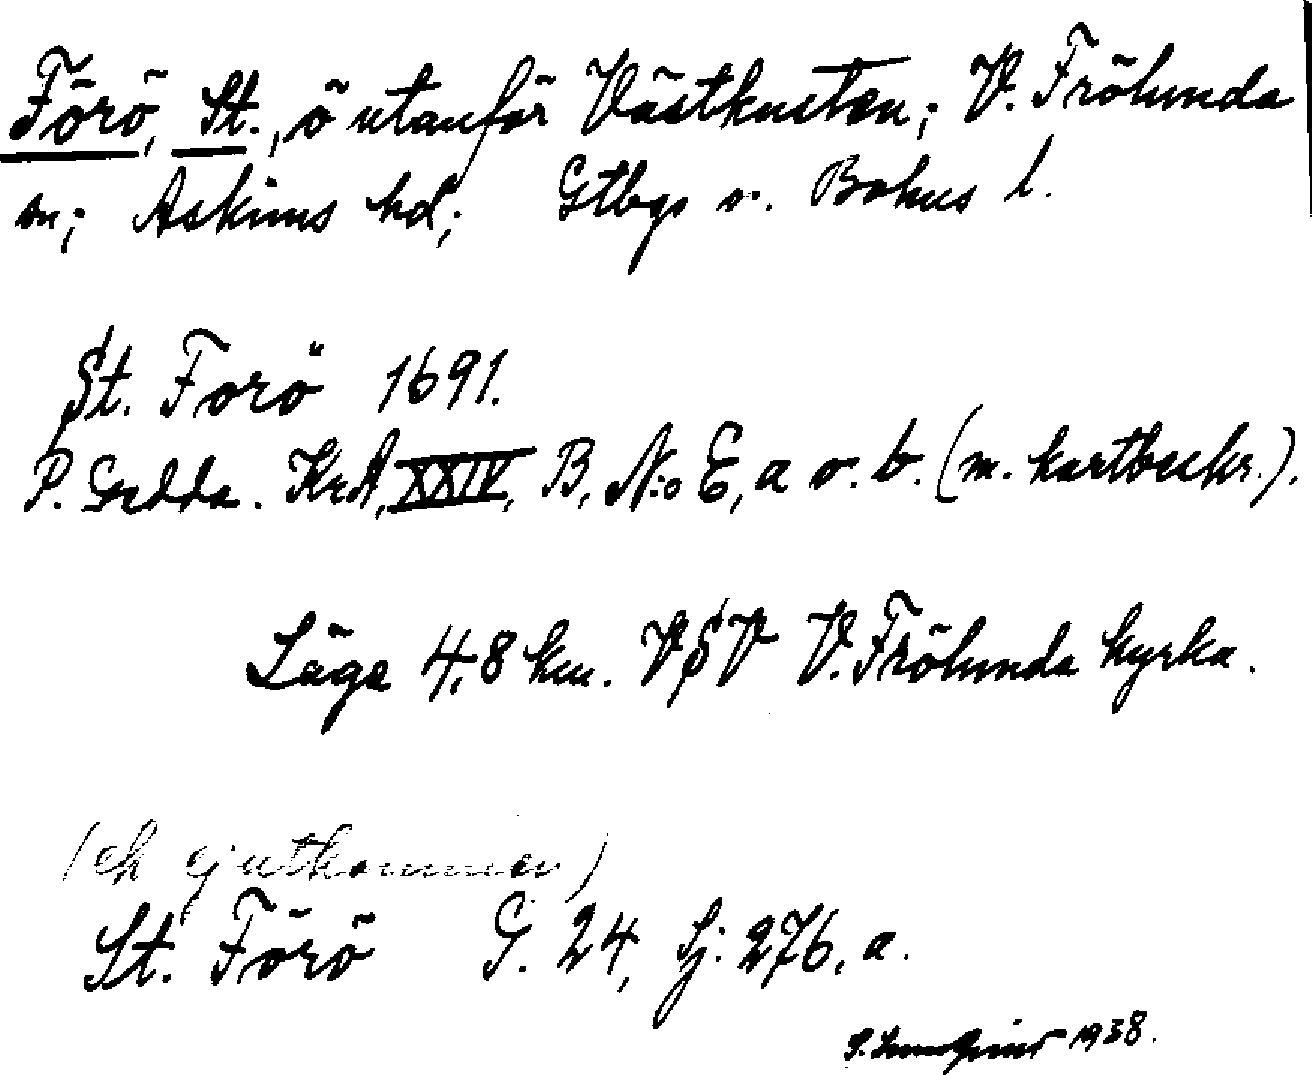 Förö, St., ö utanför Västkusten; V. Frölunda
sn; Askims hd; Gtbgs o. Bohus l.
St. Forö 1691.
P. Gedda. KrA, XXIV, B, N:o E, a o. b. (m. kartbeskr.).
Läge 4,8 km. VSV V. Frölunda kyrka.
(ek ej utkommen)
St. Förö G. 24, Sj: 276, a.
1938.